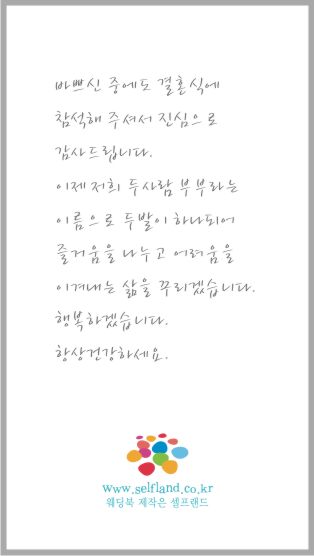 바쁘신 중에도 결혼식에
참석해 주셔서 진심으로
감사드립니다.
이제 저희 두사람 부부라는
이름으로 두발이 하나되어
즐거움을 나누고 어려움을
이겨내는 삶을 꾸리겠습니다.
행복하겠습니다.
항상건강하세요.
www.selfland.co.kr
웨딩북 제작은 셀프랜드